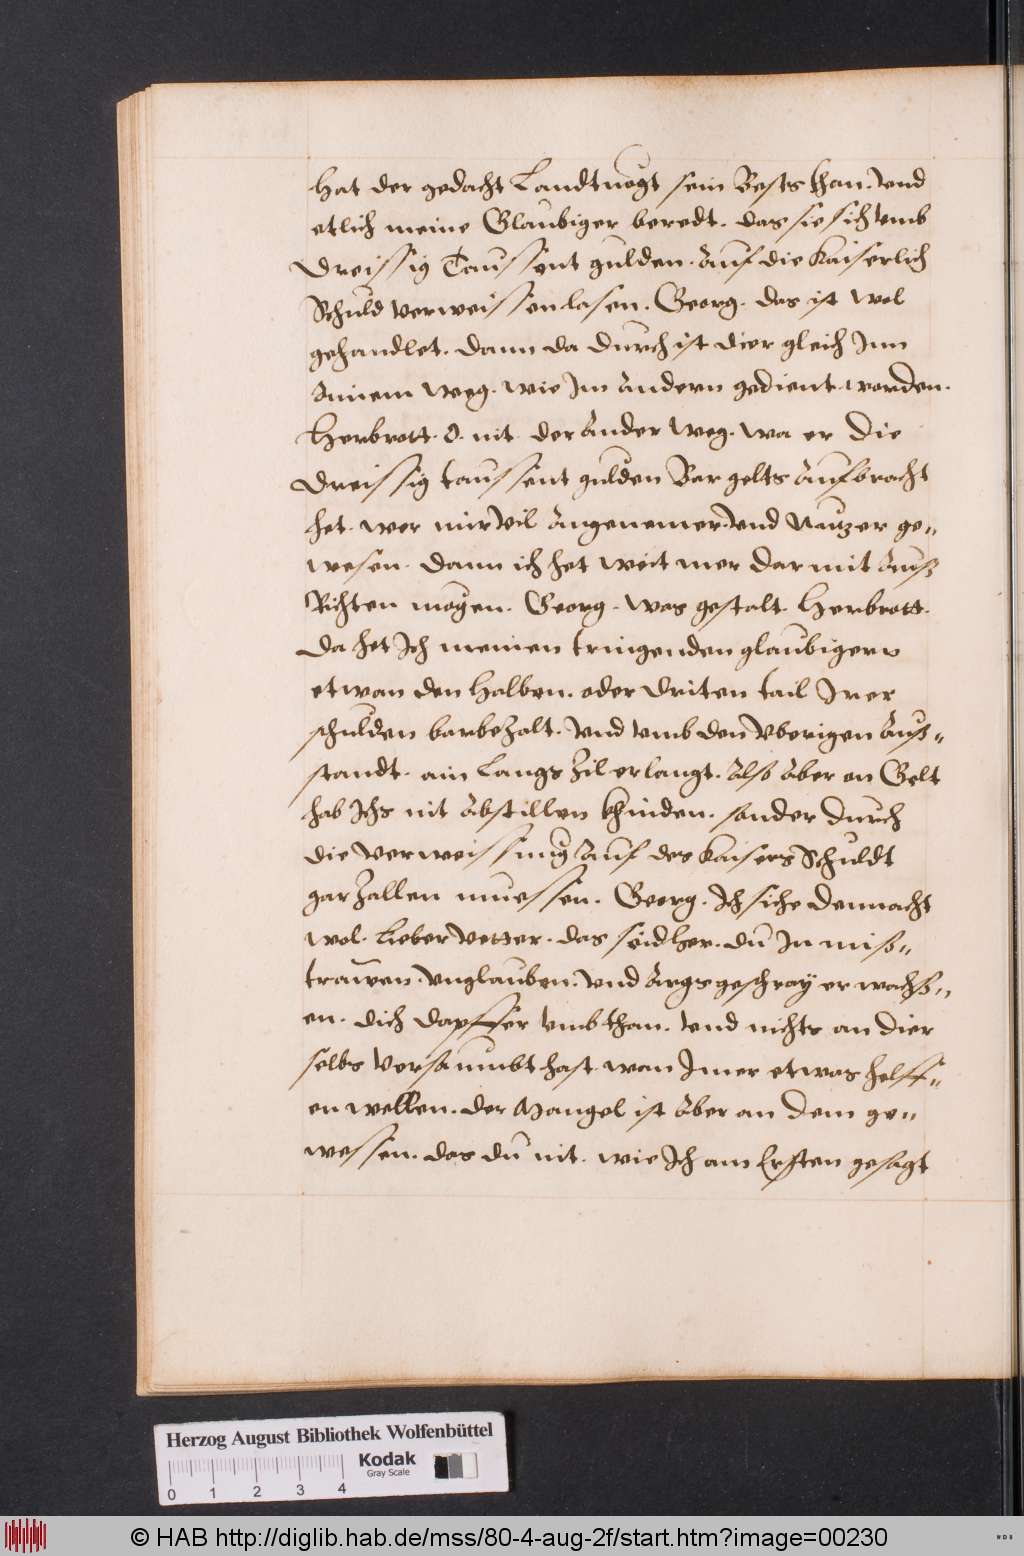 Hat der gedacht Landtuogt sein Bests than. Und
etlich meine Glaubiger beredt. das sie sich umb
Dreissig Taussent gulden. Auf die Kaiserlich
Schuld verweissen lasen. Georg. das ist wol
gehandlet. dann da durch ist dier gleich Inn
Ainem weg. wie Im Andern gedient worden.
Herbrott. O. nit der Ander weg. wa er die
Dreissig taussent gulden Bar gelts Aufbracht
het. wer mir vil Angenemer. Und Nutzer ge=
wesen. Dann ich het weit mer dar mit Auß
Richten mögen. Georg. Was gestalt. Herbrott.
Da het Ich meinen tringenden glaubigern
etwan den halben. oder driten tail Irer
schulden bar bezalt. Und umb den Vberigen Auß=
standt. ain Langs Zil erlangt. Also Aber on Gelt
hab Ichs nit Abstillen khinden. sonder durch
die verweissung Auf des Kaisers Schuldt
gar zallen muessen. Georg. Ich siche dennacht
wol. Lieber Vetter. das seidher. du In miß=
trawen. Unglauben. Und Args geschray erwachß=
en. dich dapffer umb than. Und nichts an dier
selbs Versaumbt hast wan Imer etwas helff=
en wellen. der Mangel ist Aber an dem ge=
wessen. das du nit. wie Ich am Ersten gesagt
Herzog August Bibliothek Wolfenbüttel
Kodak
Gray Scale
0 1 2 3 4
© HAB http://diglib.hab.de/mss/80-4-aug-2f/start.htm?image=00230